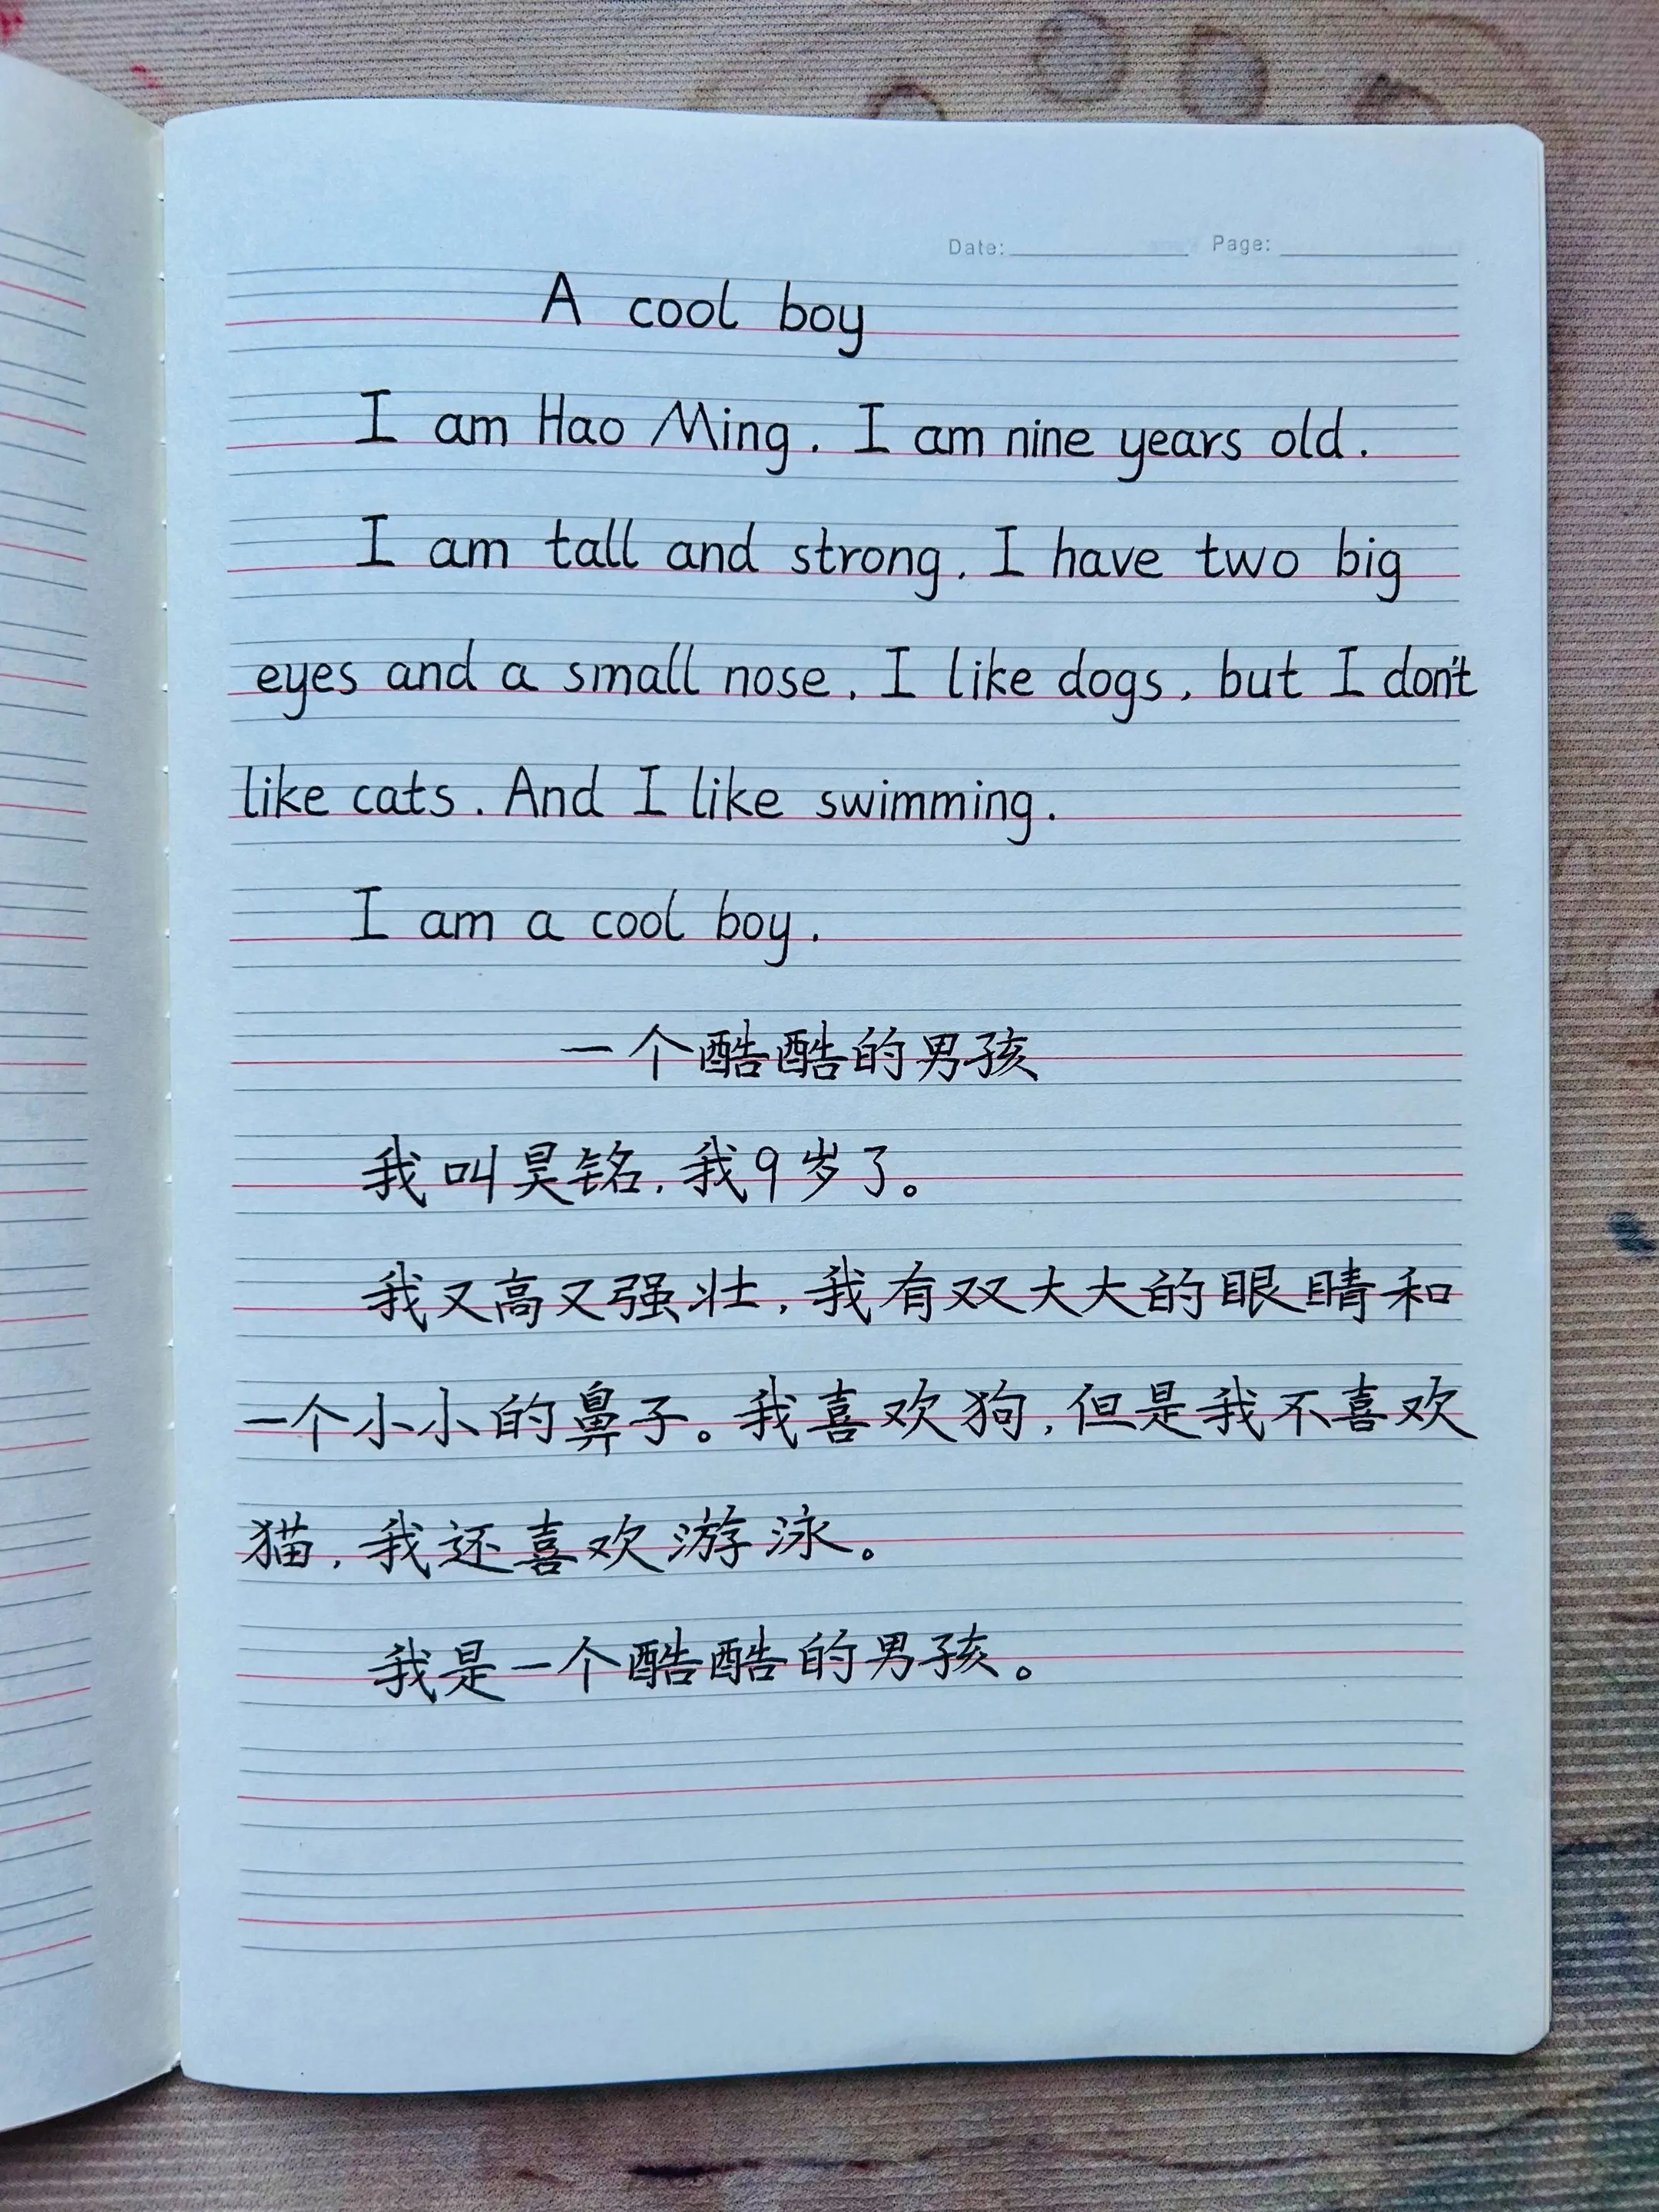 Date: Page:
A cool boy
I am Hao Ming. I am nine years old.
I am tall and strong. I have two big
eyes and a small nose. I like dogs, but I don't
like cats. And I like swimming.
I am a cool boy.
一个酷酷的男孩
我叫昊铭,我9岁了。
我又高又强壮,我有双大大的眼睛和
一个小小的鼻子。我喜欢狗,但是我不喜欢
猫,我还喜欢游泳。
我是一个酷酷的男孩。